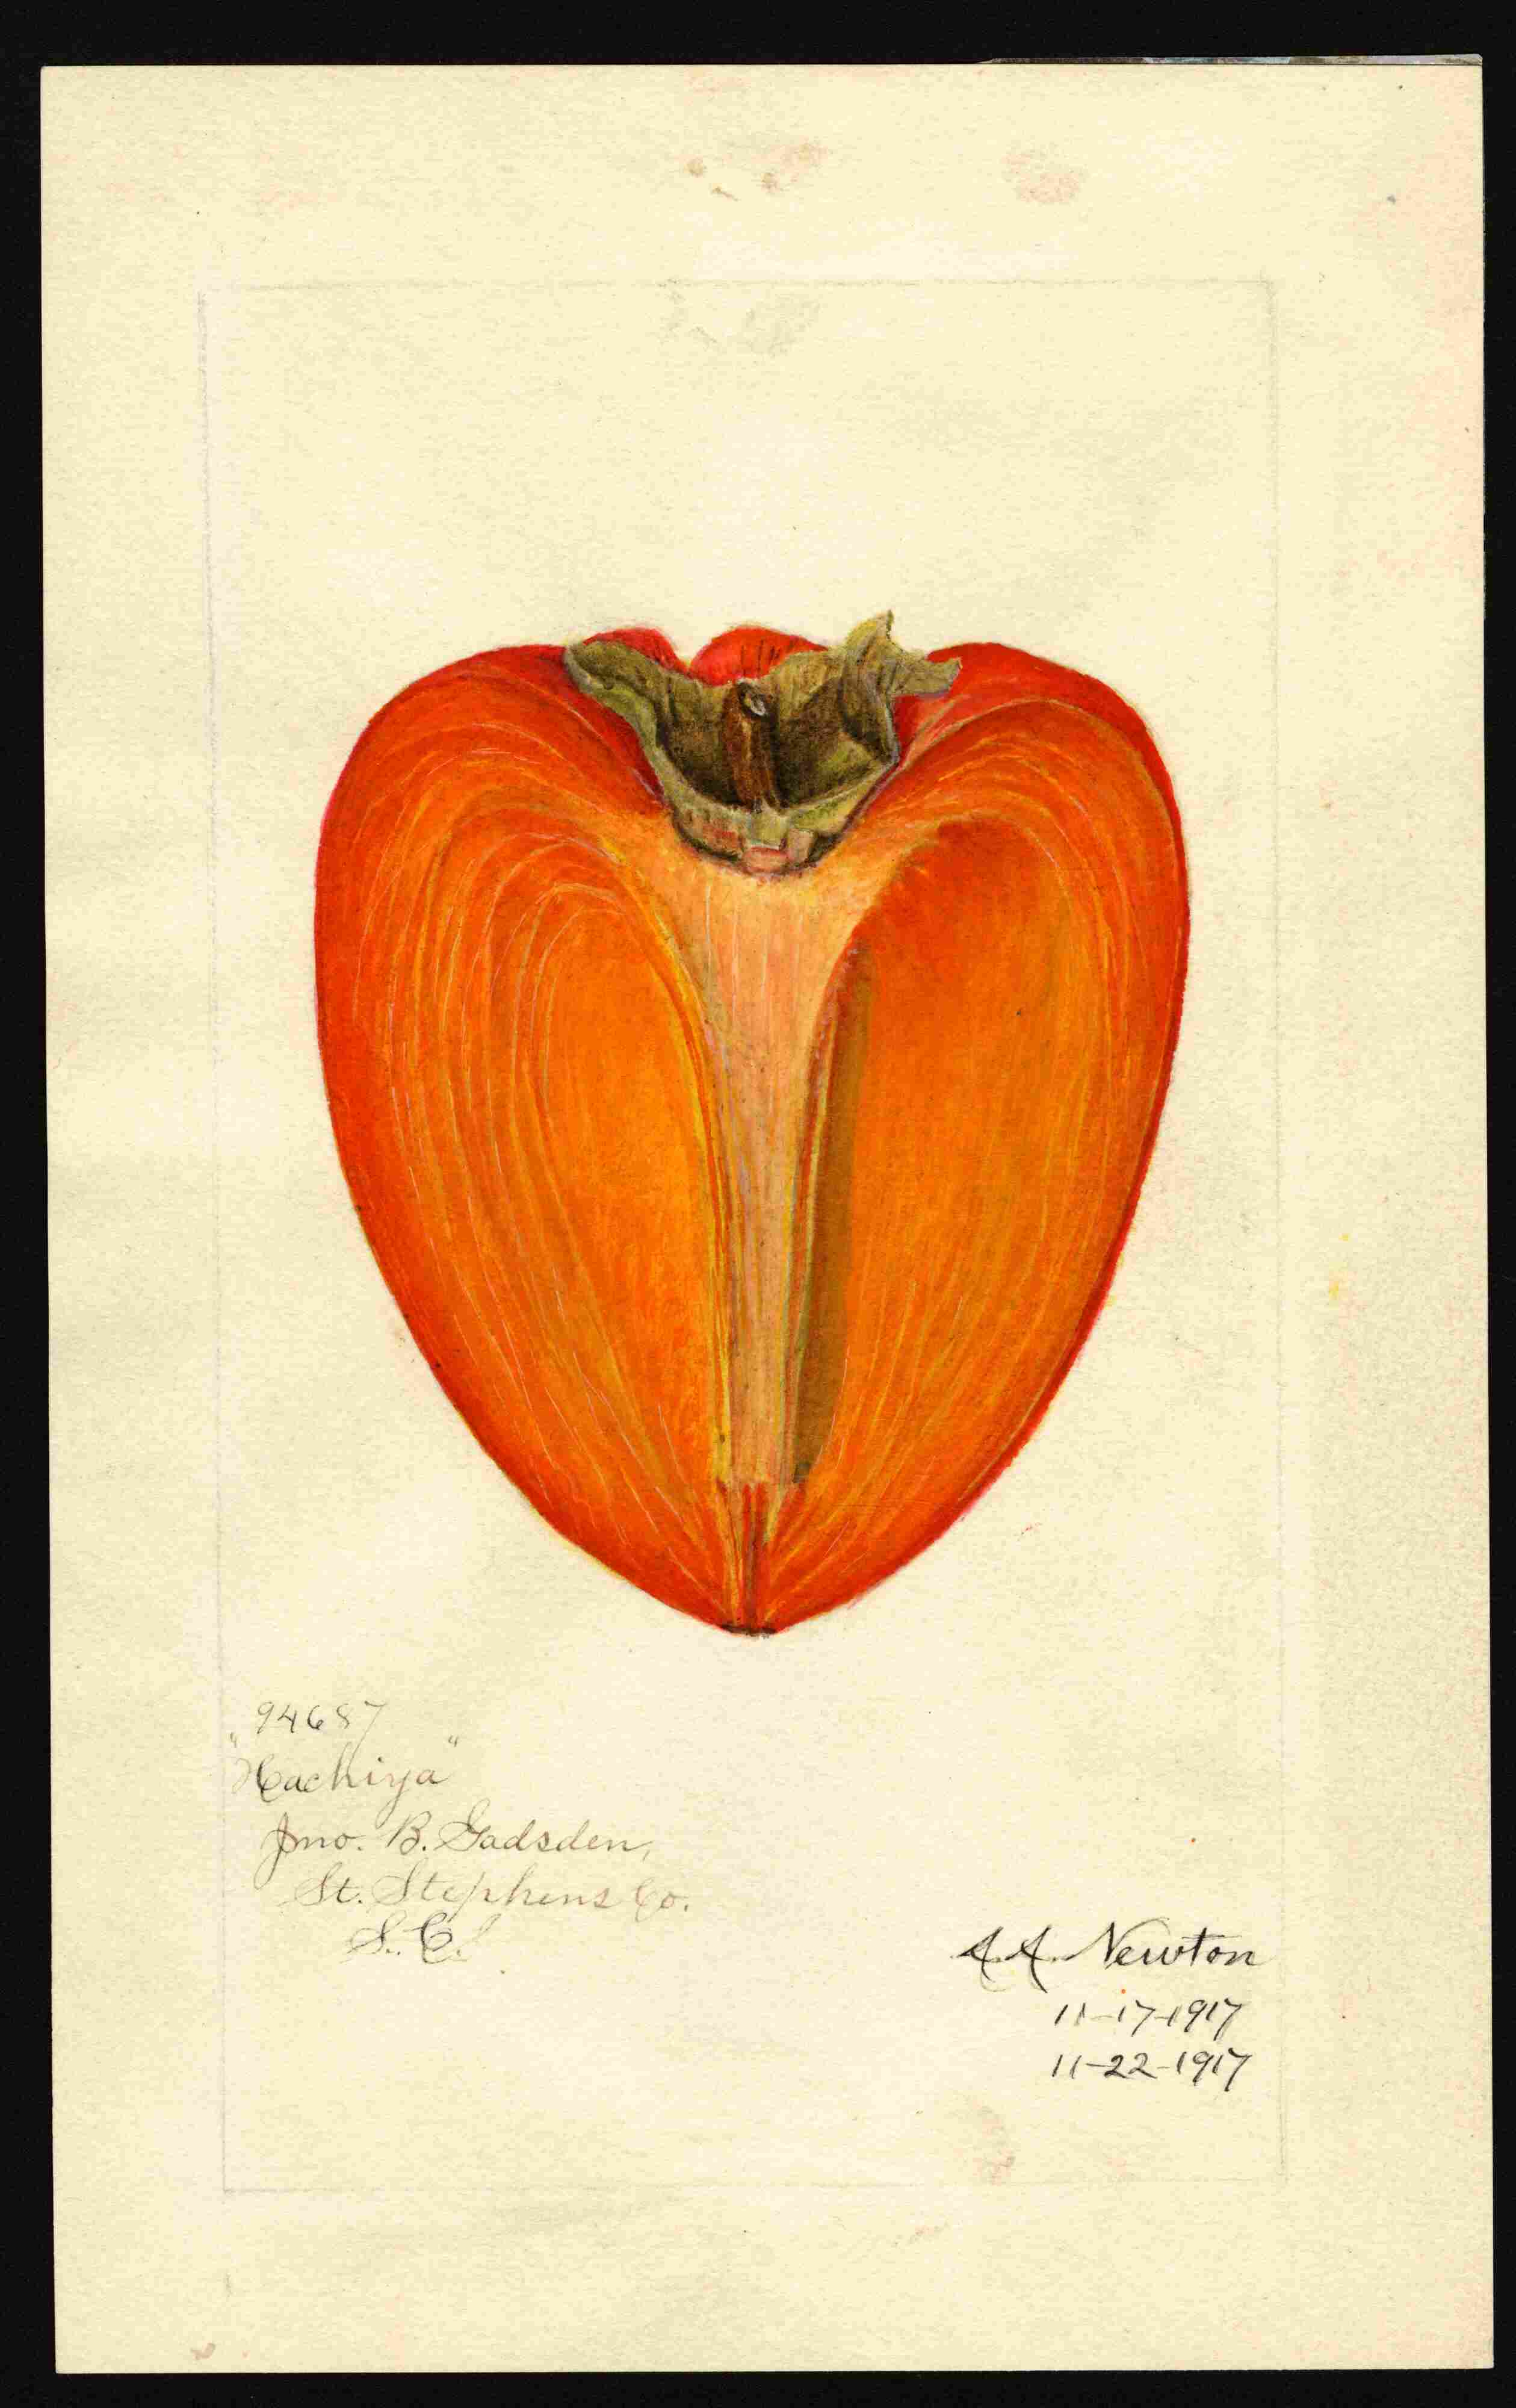 94687
"Hachiya"
Jno. B. Gadsden,
St. Stephens Co.
S. C.
A.A. Newton
11-17-1917
11-22-1917